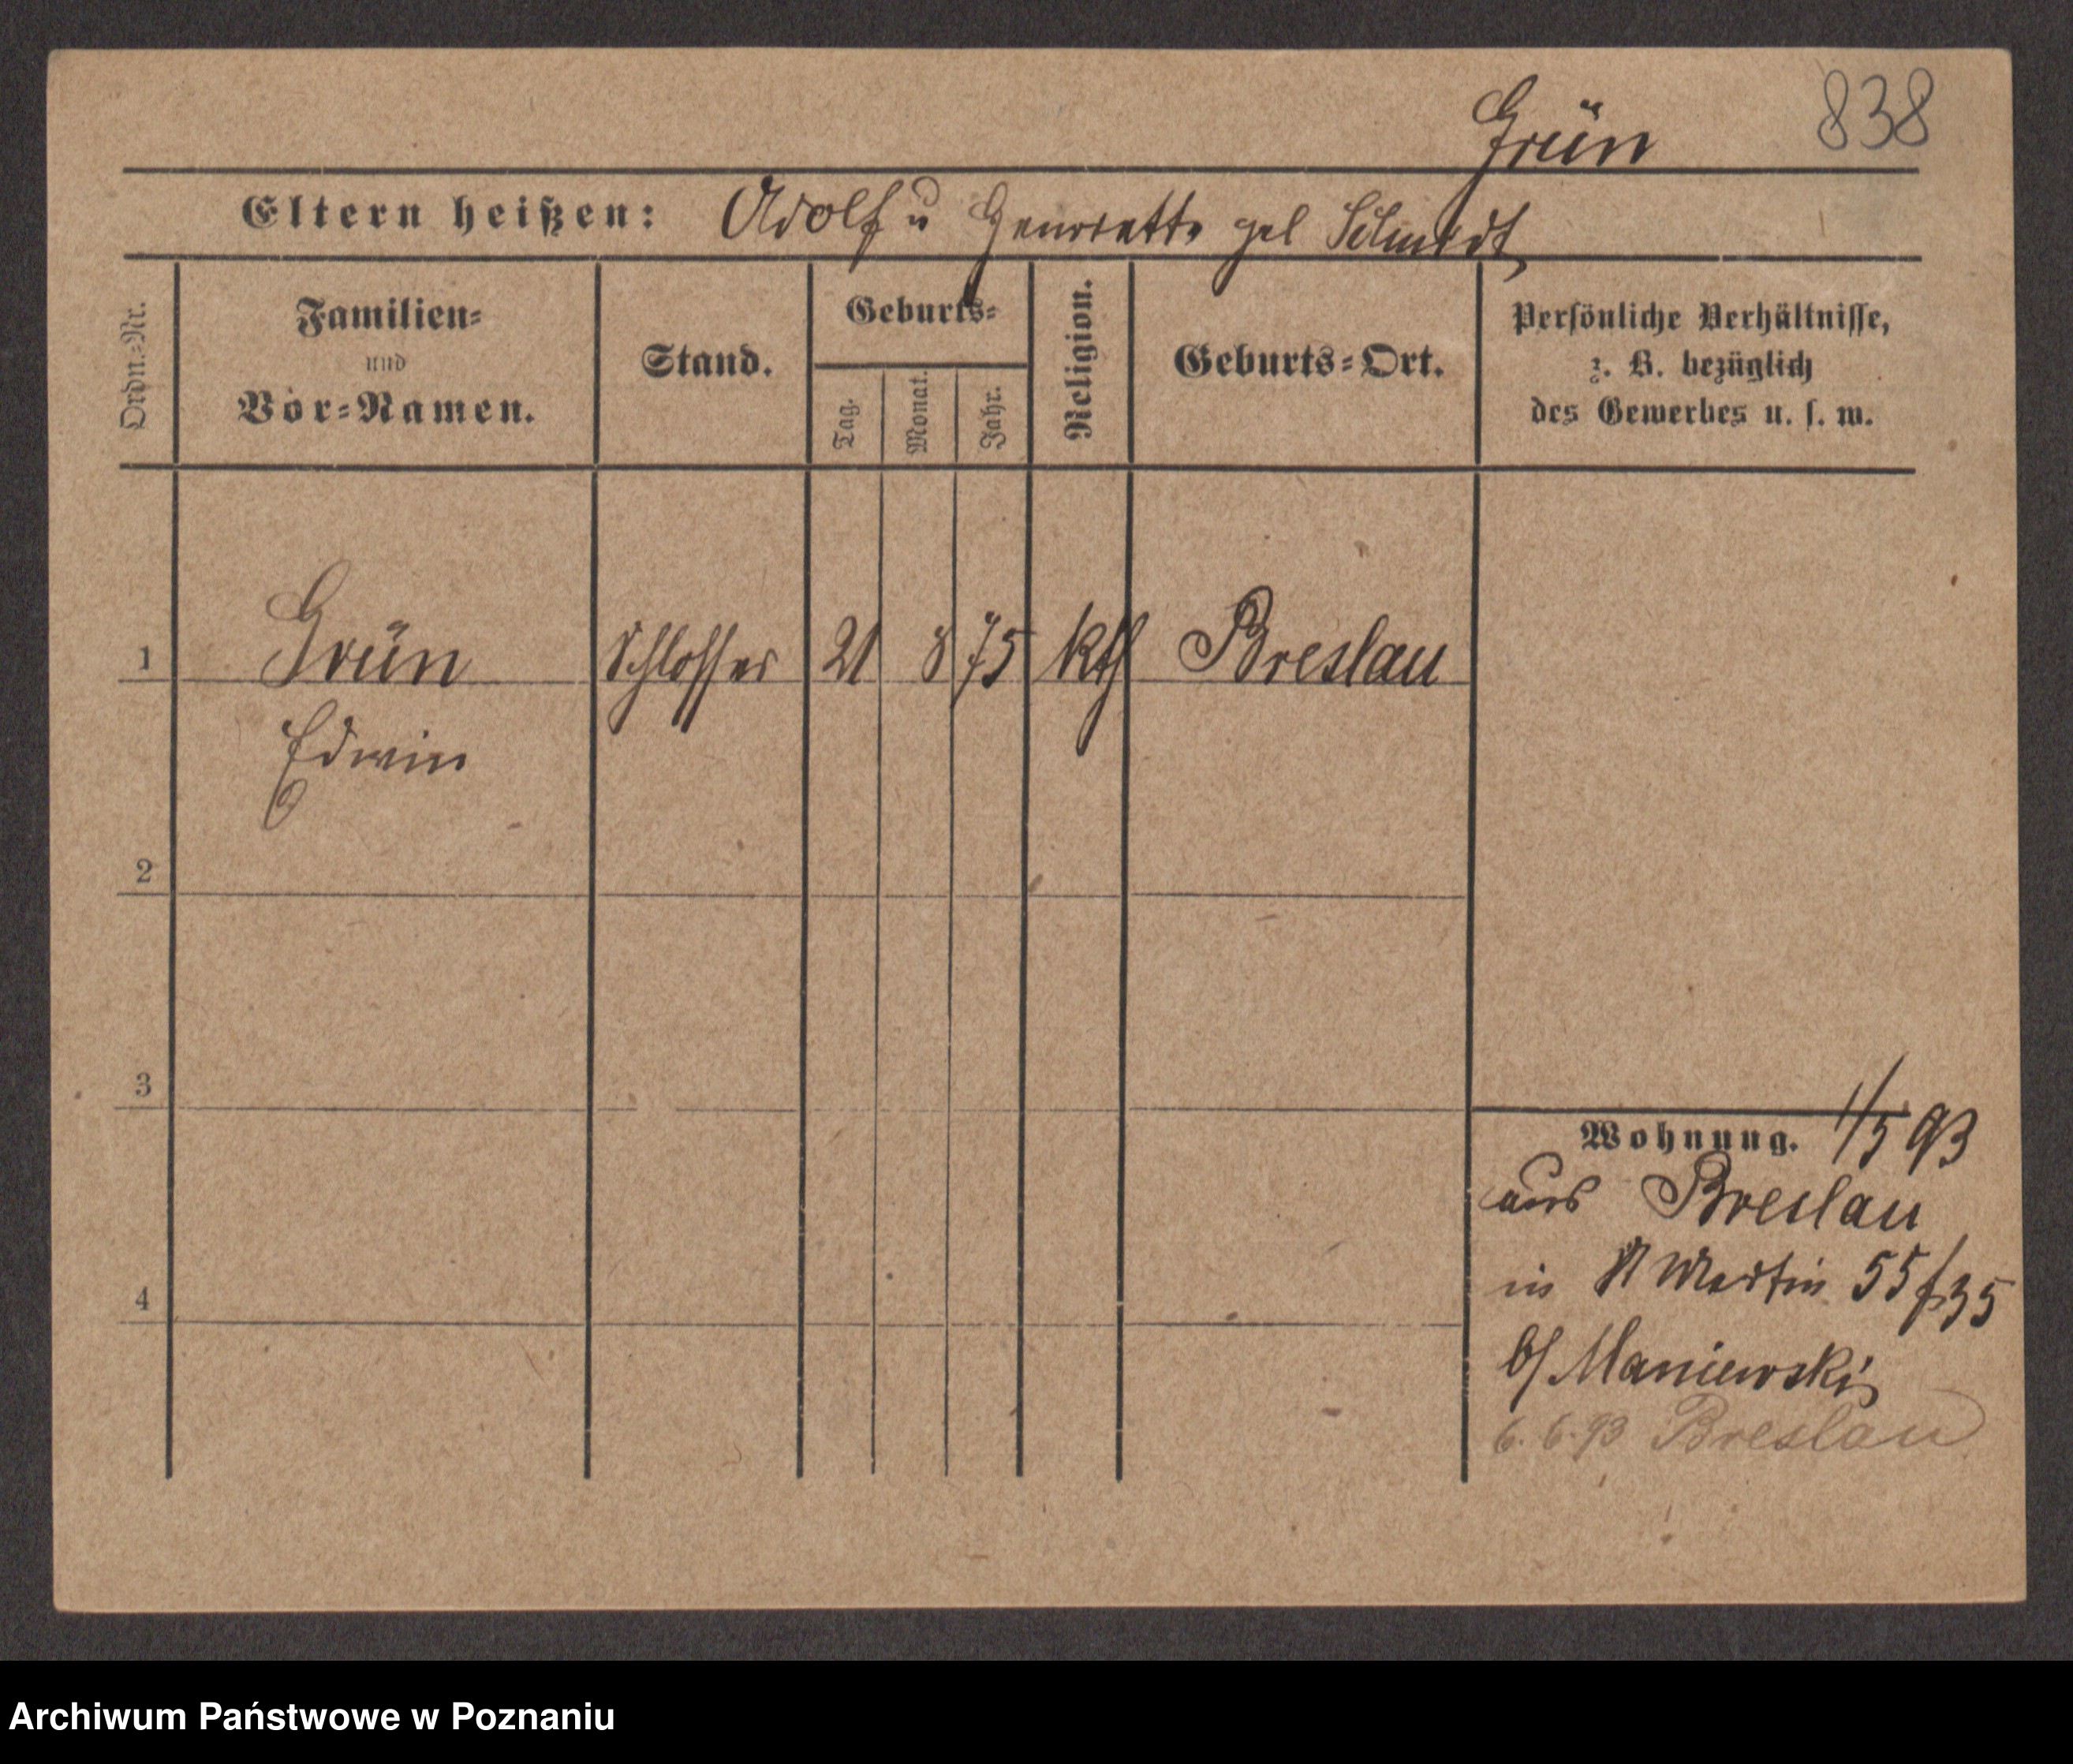 Grün 838
Eltern heißen: Adolf u Henriette geb Schmidt
Ordn.-Nr.
Familien-
und
Vor-Namen.
Stand.
Geburts-
Tag.
Monat.
Jahr.
Religion.
Geburts-Ort.
Persönliche Verhältnisse,
z. B. bezüglich
des Gewerbes u. s. w.
1 Grün Schlosser 21 8 75 kth Breslau
Edwin
2
3
4
Wohnung. 1/5 93
aus Breslau
in St Martin 55 f 35
b/ Maniewski
6. 6. 93 Breslau
Archiwum Państwowe w Poznaniu